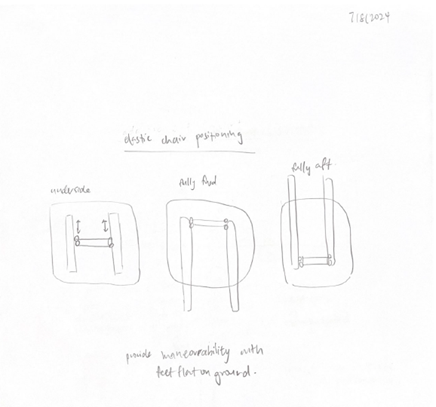 7/8/2024
elastic chair positioning
underside
fully fwd
fully aft
provide maneuverability with
feet flat on ground.